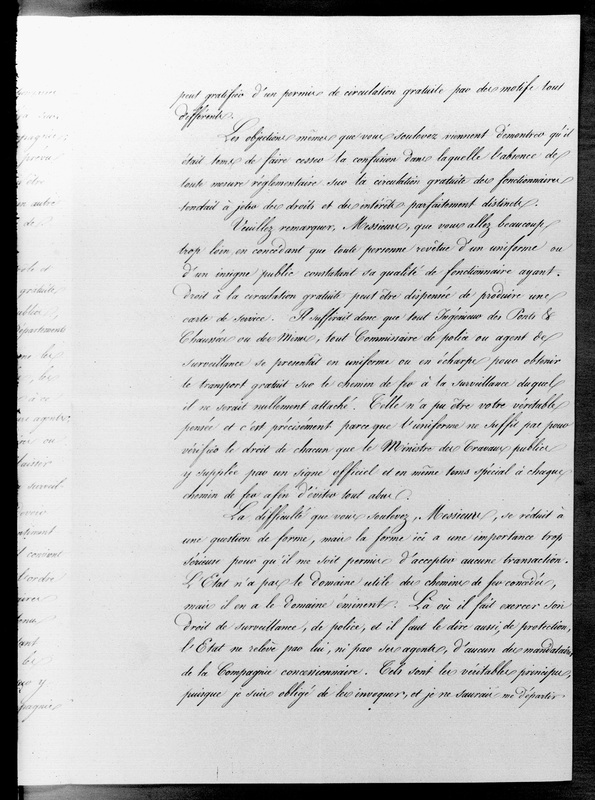 peut gratifier d'un permis de circulation gratuite par des motifs tout
différents.
Les objections mêmes que vous soulevez viennent démontrer qu'il
était tems de faire cesser la confusion dans laquelle l'absence de
toute mesure réglementaire sur la circulation gratuite des fonctionnaires
tendait à jeter des droits et des intérêts parfaitement distincts.
Veuillez remarquer, Messieurs, que vous allez beaucoup
trop loin en concédant que toute personne revêtue d'un uniforme ou
d'un insigne public constatant sa qualité de fonctionnaire ayant
droit à la circulation gratuite peut être dispensée de produire une
carte de service. Il suffirait donc que tout Ingénieur des Ponts &
Chaussées ou des Mines, tout Commissaire de police ou agent de
surveillance se présentât en uniforme ou en écharpe pour obtenir
le transport gratuit sur le chemin de fer à la surveillance duquel
il ne serait nullement attaché. Telle n'a pu être votre véritable
pensée et c'est précisément parce que l'uniforme ne suffit pas pour
vérifier le droit de chacun que le Ministre des Travaux publics
y supplée par un signe officiel et en même tems spécial à chaque
chemin de fer afin d'éviter tout abus.
La difficulté que vous soulevez, Messieurs, se réduit à
une question de forme, mais la forme ici a une importance trop
sérieuse pour qu'il me soit permis d'accepter aucune transaction.
L'Etat n'a pas le domaine utile des chemins de fer concédés,
mais il en a le domaine éminent. Là où il fait exercer son
droit de surveillance, de police, et il faut le dire aussi, de protection,
l'Etat ne relève par lui, ni par ses agents, d'aucun des mandataires
de la Compagnie concessionnaire. Tels sont les véritables principes,
puisque je suis obligé de les invoquer, et je ne saurais me départir